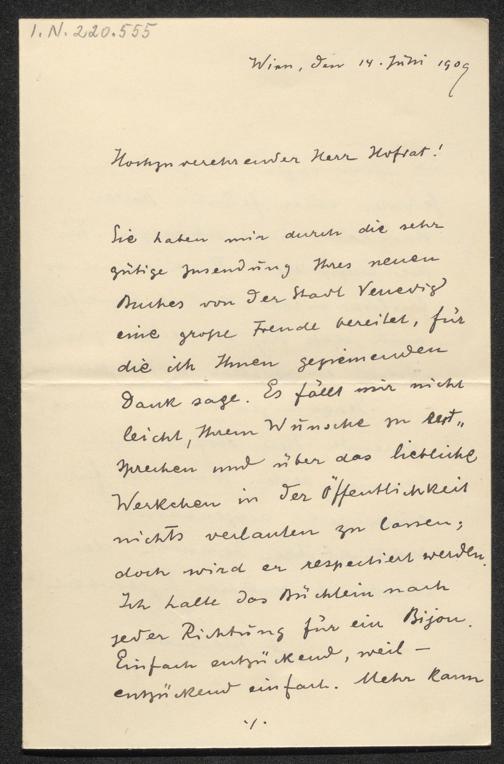 I.N. 220.555
Wien, den 14. Juni 1909
Hochzuverehrender Herr Hofrat!
Sie haben mir durch die sehr
gütige Zusendung Ihres neuen
Buches von der Stadt Venedig
eine große Freude bereitet, für
die ich Ihnen geziemenden
Dank sage. Es fällt mir nicht
leicht, Ihrem Wunsche zu ent„
sprechen und über das liebliche
Werkchen in der Öffentlichkeit
nichts verlauten zu lassen;
doch wird er respectiert werden.
Ich halte das Büchlein nach
jeder Richtung für ein Bijou.
Einfach entzückend, weil –
entzückend einfach. Mehr kann
./.